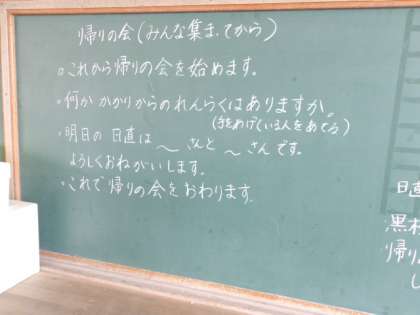 帰りの会(みんな集まってから)
。これから帰りの会を始めます。
・何かかかりからのれんらくはありますか。
(手をあげている人をあてる)
・明日の日直は〜さんと〜さんです。
よろしくおねがいします。
・これで帰りの会をおわります。
日直
黒板
帰り